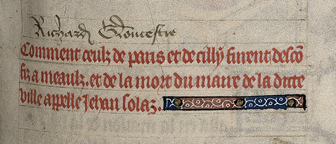 Richard Gloucestre
Comment ceulz de paris et de cilly furent desco
fiz a meaulz. et de la mort du maire de la dicte
ville appelle Jehan solaz.